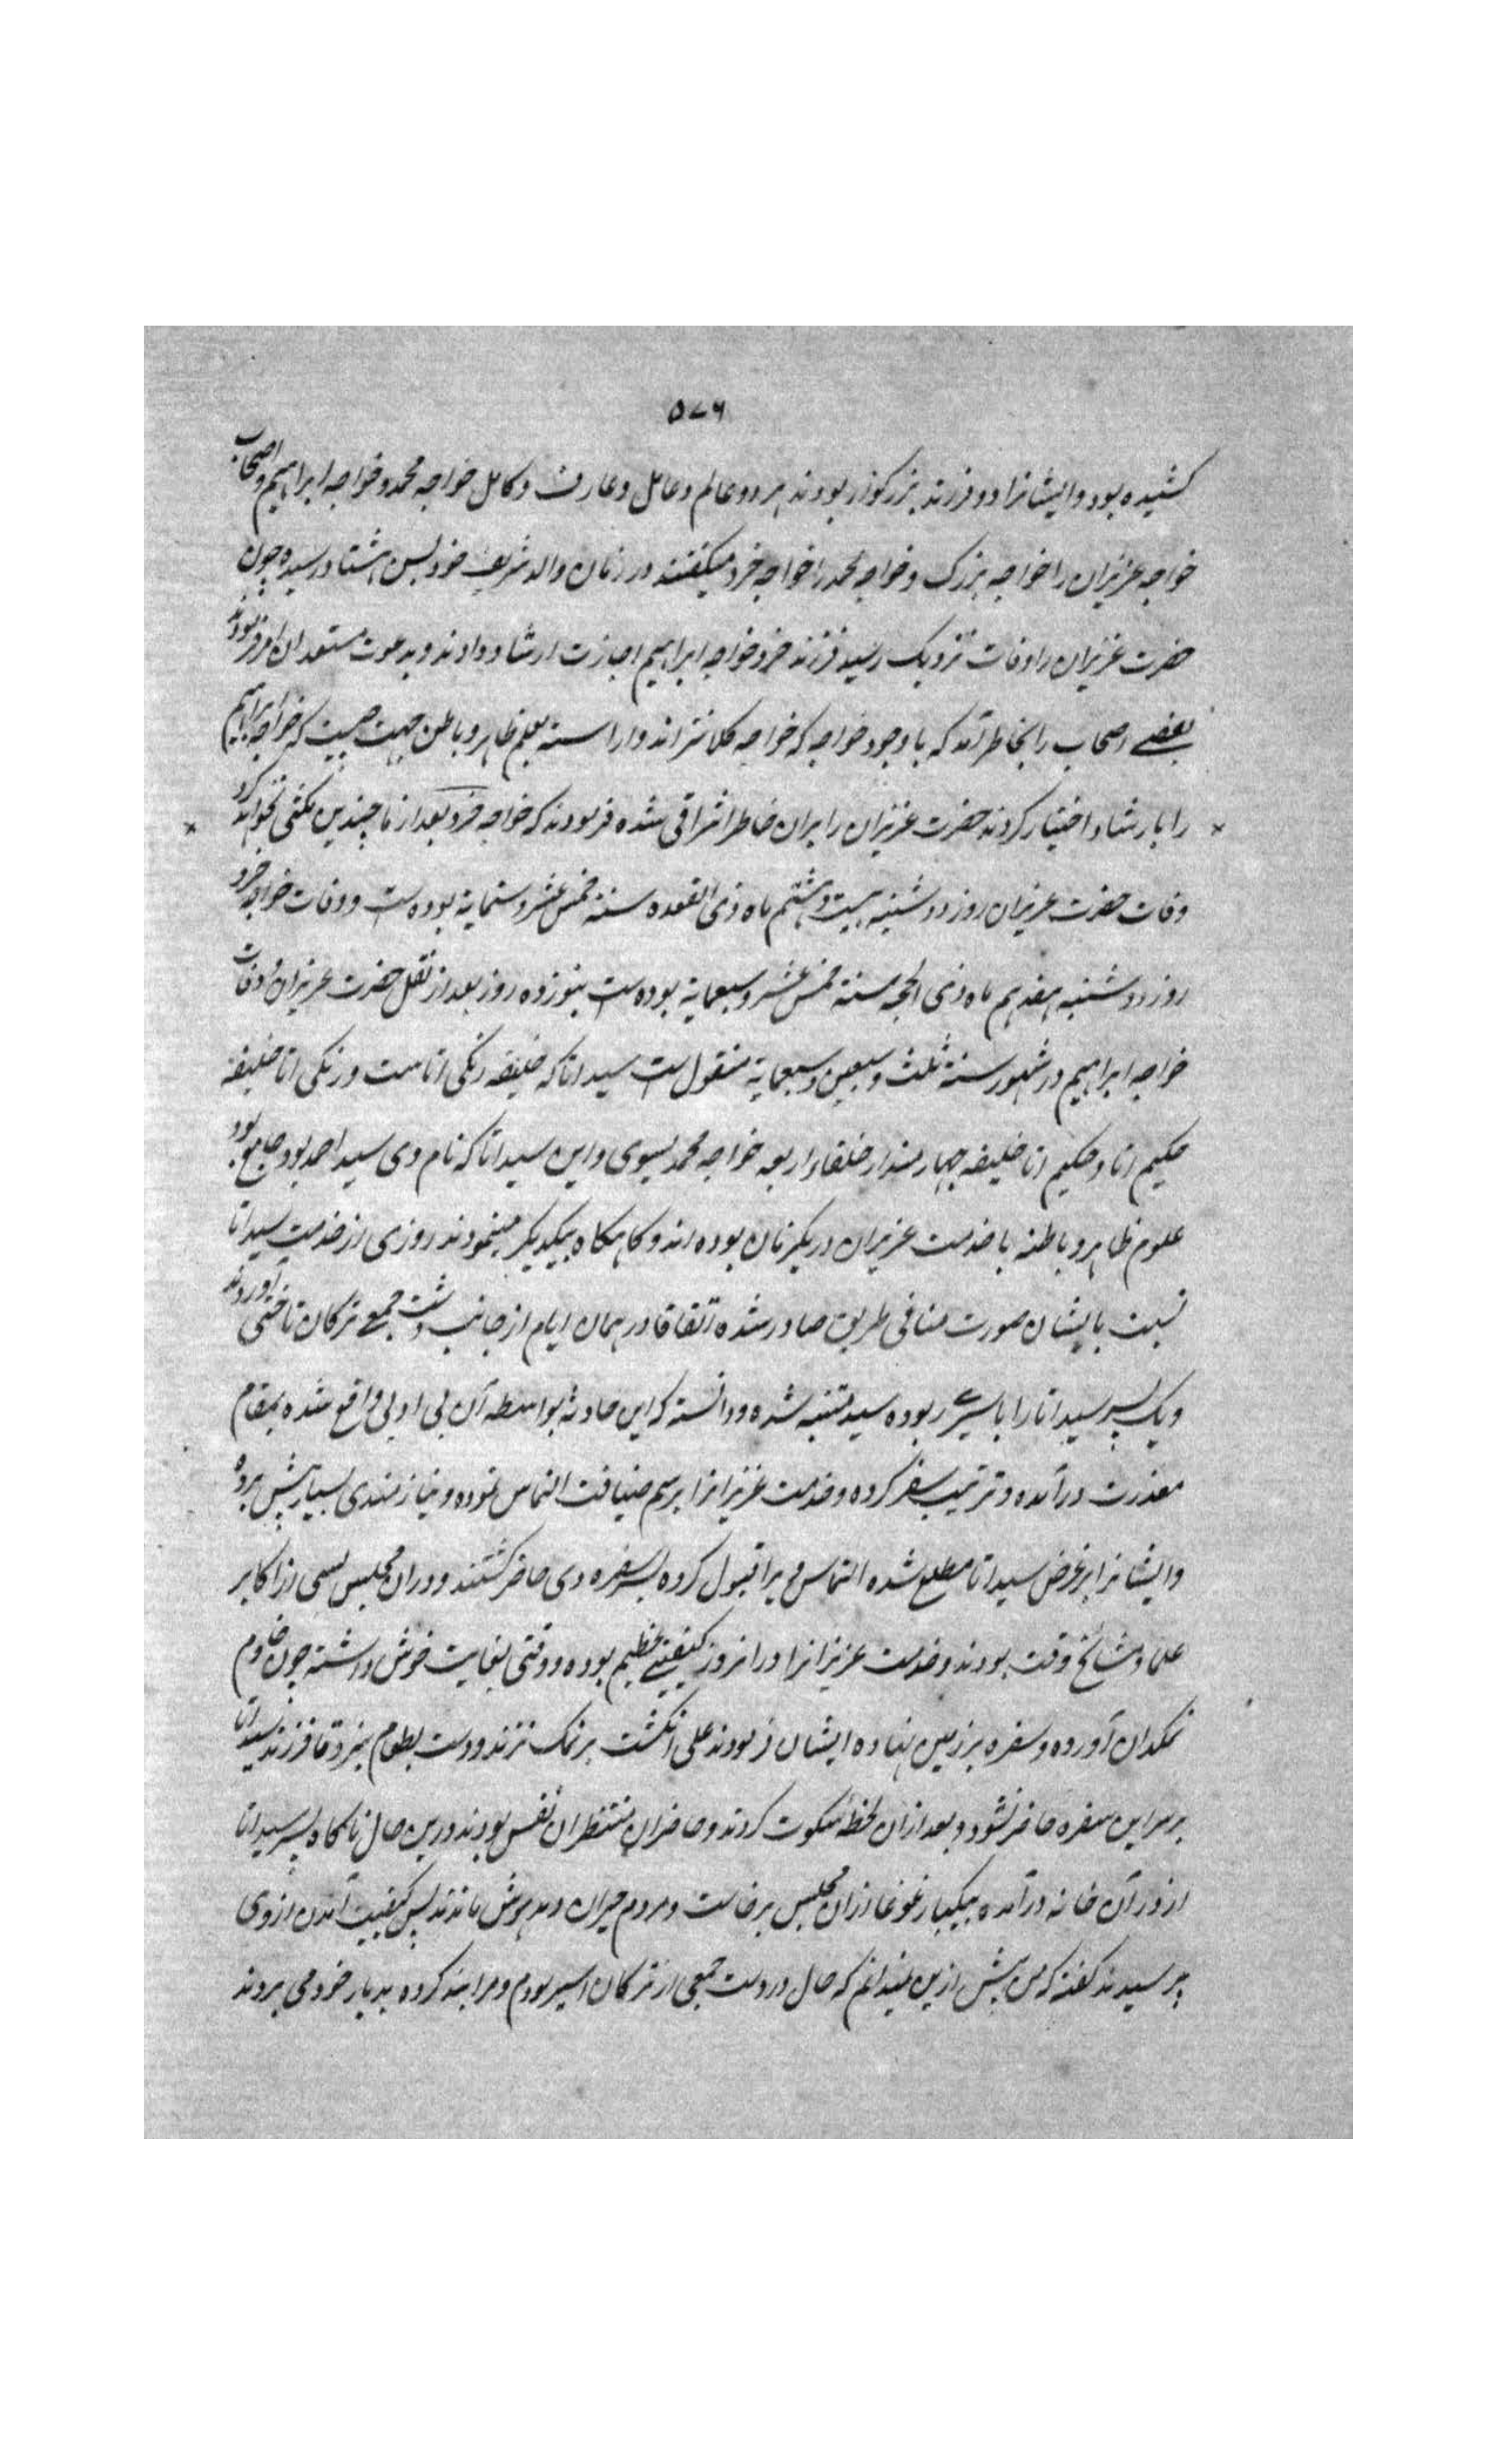 ۵۷۶
کشیده بود و ایشانرا دو فرزند بزرکوار بودند هر دو عالم و عامل و عارف و کامل خواجه محمد و خواجه ابراهیم و اصحاب
خواجه عزیزان را خواجه بزرک و خواجه محمد را خواجه خرد میکفتند در زمان والد شریف خود بسن هشتاد رسیده چون
حضرت عزیزان را وفات نزدیک رسید فرزند خرد خواجه ابراهیم اجازت ارشاد دادند و بدعوت مستعدان امر فرمودند
بعضے اصحاب را بخاطر آمد که با وجود خواجه که خواجه کلانتراند و اراسته بعلم ظاهر و باطن جهت چیست که خواجه ابراهیم
را بارشاد اختیار کردند حضرت عزیزان را بران خاطر اشراقی شده فرمودند که خواجه خرد بعد از ما چندین مکثی نخواهد کرد
وفات حضرت عزیزان روز دوشنبه بیست و هشتم ماه ذی القعده سنة خمس عشر و ستمایة بوده است و وفات خواجه خرد
روز دوشنبه هفدهم ماه ذی الحجه سنة خمس عشر و سبعمایة بوده است بنوزده روز بعد از نقل حضرت عزیزان و وفات
خواجه ابراهیم در شهور سنة ثلث و سبعین و سبعمایة منقول است سید اتا که خلیفه زنکی اتا ست و زنکی اتا خلیفه
حکیم اتا و حکیم اتا خلیفه چهارمند از خلفاء اربعه خواجه محمد یسوی و این سید اتا که نام وی سید احمد بود جامع بود
علوم ظاهر و باطنه با خدمت عزیزان در یکزمان بوده اند و کاهکاه بیکدیکر مینمودند روزی از خدمت سید اتا
نسبت بایشان صورت منافی طریق صادر شده اتفاقا در همان ایام از جانب دشت جمعے ترکان تاختی آوردند
و یک پسر سید اتا را باسیرے ربوده سید متنبه شده و دانسته که این حادثه بواسطه آن بی ادبی واقع شده بمقام
معذرت درآمده و ترتیب سفر کرده و خدمت عزیزانرا برسم ضیافت التماس نموده و نیازمندی بسیار پیش برده
و ایشانرا بر غرض سید اتا مطلع شده التماس ویرا قبول کرده بسر سفره وی حاضر کشتند و در ان مجلس بسی از اکابر
علما و مشائخ وقت بودند و خدمت عزیزانرا در انروز کیفیتے عظیم بوده و وقتی بغایت خوش داشته چون خادم
نمکدان آورده و سفره بر زمین نهاده ایشان فرمودند علی انکشت بر نمک نزند و دست بطعام نبرد تا فرزند سید اتا
بر سر این سفره حاضر نشود و بعد ازان لحظهٔ سکوت کردند و حاضران منتظران نفس بودند درین حال ناکاه پسر سید اتا
از در آن خانه درآمده بیکبار غوغا ازان مجلس برخاست و مردم حیران و مدهوش ماندند پس کیفیت آمدن از وی
پرسیدند کفته که من بیش ازین نمیدانم که حال در دست جمعی از ترکان اسیر بودم و مرا بند کرده بدیار خود می بردند